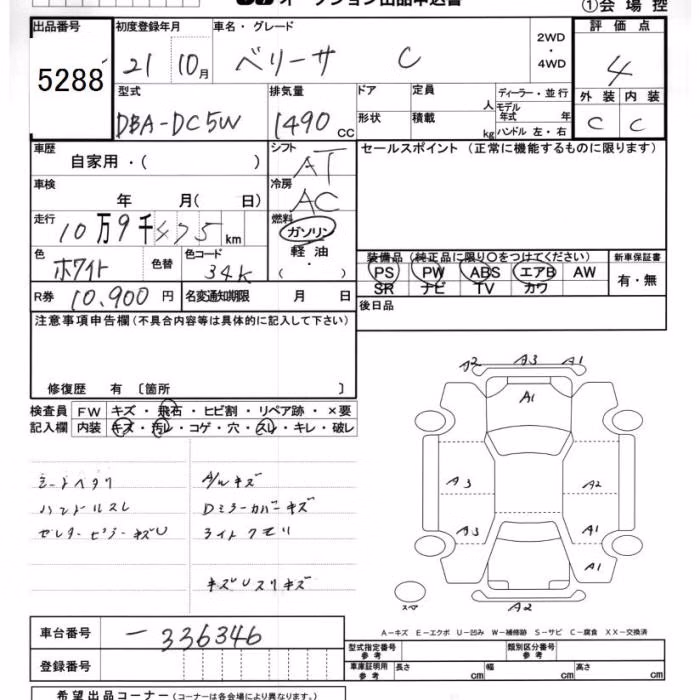 オークション出品申込書
①会場控
出品番号 5288
初度登録年月 21 10月
車名・グレード ベリーサ C
2WD・4WD
評価点 4
外装 C 内装 C
型式 DBA-DC5W
排気量 1490 CC
ドア 形状
定員 人
積載 kg
ディーラー・並行
モデル年式 年
ハンドル 左・右
車歴 自家用・( )
シフト AT
セールスポイント (正常に機能するものに限ります)
車検 年 月( 日)
冷房 AC
走行 10万9千475km
燃料 ガソリン 軽油 ( ・ )
色 ホワイト 色替
色コード 34K
装備品 (純正品に限り○をつけてください)
PS PW ABS エアB AW
SR ナビ TV カワ
新車保証書 有・無
R券 10,900円
名変通知期限 月 日
後日品
注意事項申告欄 (不具合内容等は具体的に記入して下さい)
修復歴 有 〔箇所 〕
検査員記入欄
FW キズ・飛石・ヒビ割・リペア跡・×要
内装 キズ・汚レ・コゲ・穴・スレ・キレ・破レ
シートヘタリ A/Wキズ
ハンドルスレ Dミラーカバーキズ
センターピラーキズU ライトクモリ
キズUスリキズ
A2 A3 A1
A1
A3 A2
A3 A1
A1
A2
スペア
A-キズ E-エクボ U-凹み W-補修跡 S-サビ C-腐食 XX-交換済
車台番号 -336346
登録番号
型式指定番号 参考
類別区分番号 参考
車庫証明用 参考 長さ cm 幅 cm 高さ cm
希望出品コーナー (コーナーは各会場により異なります。)